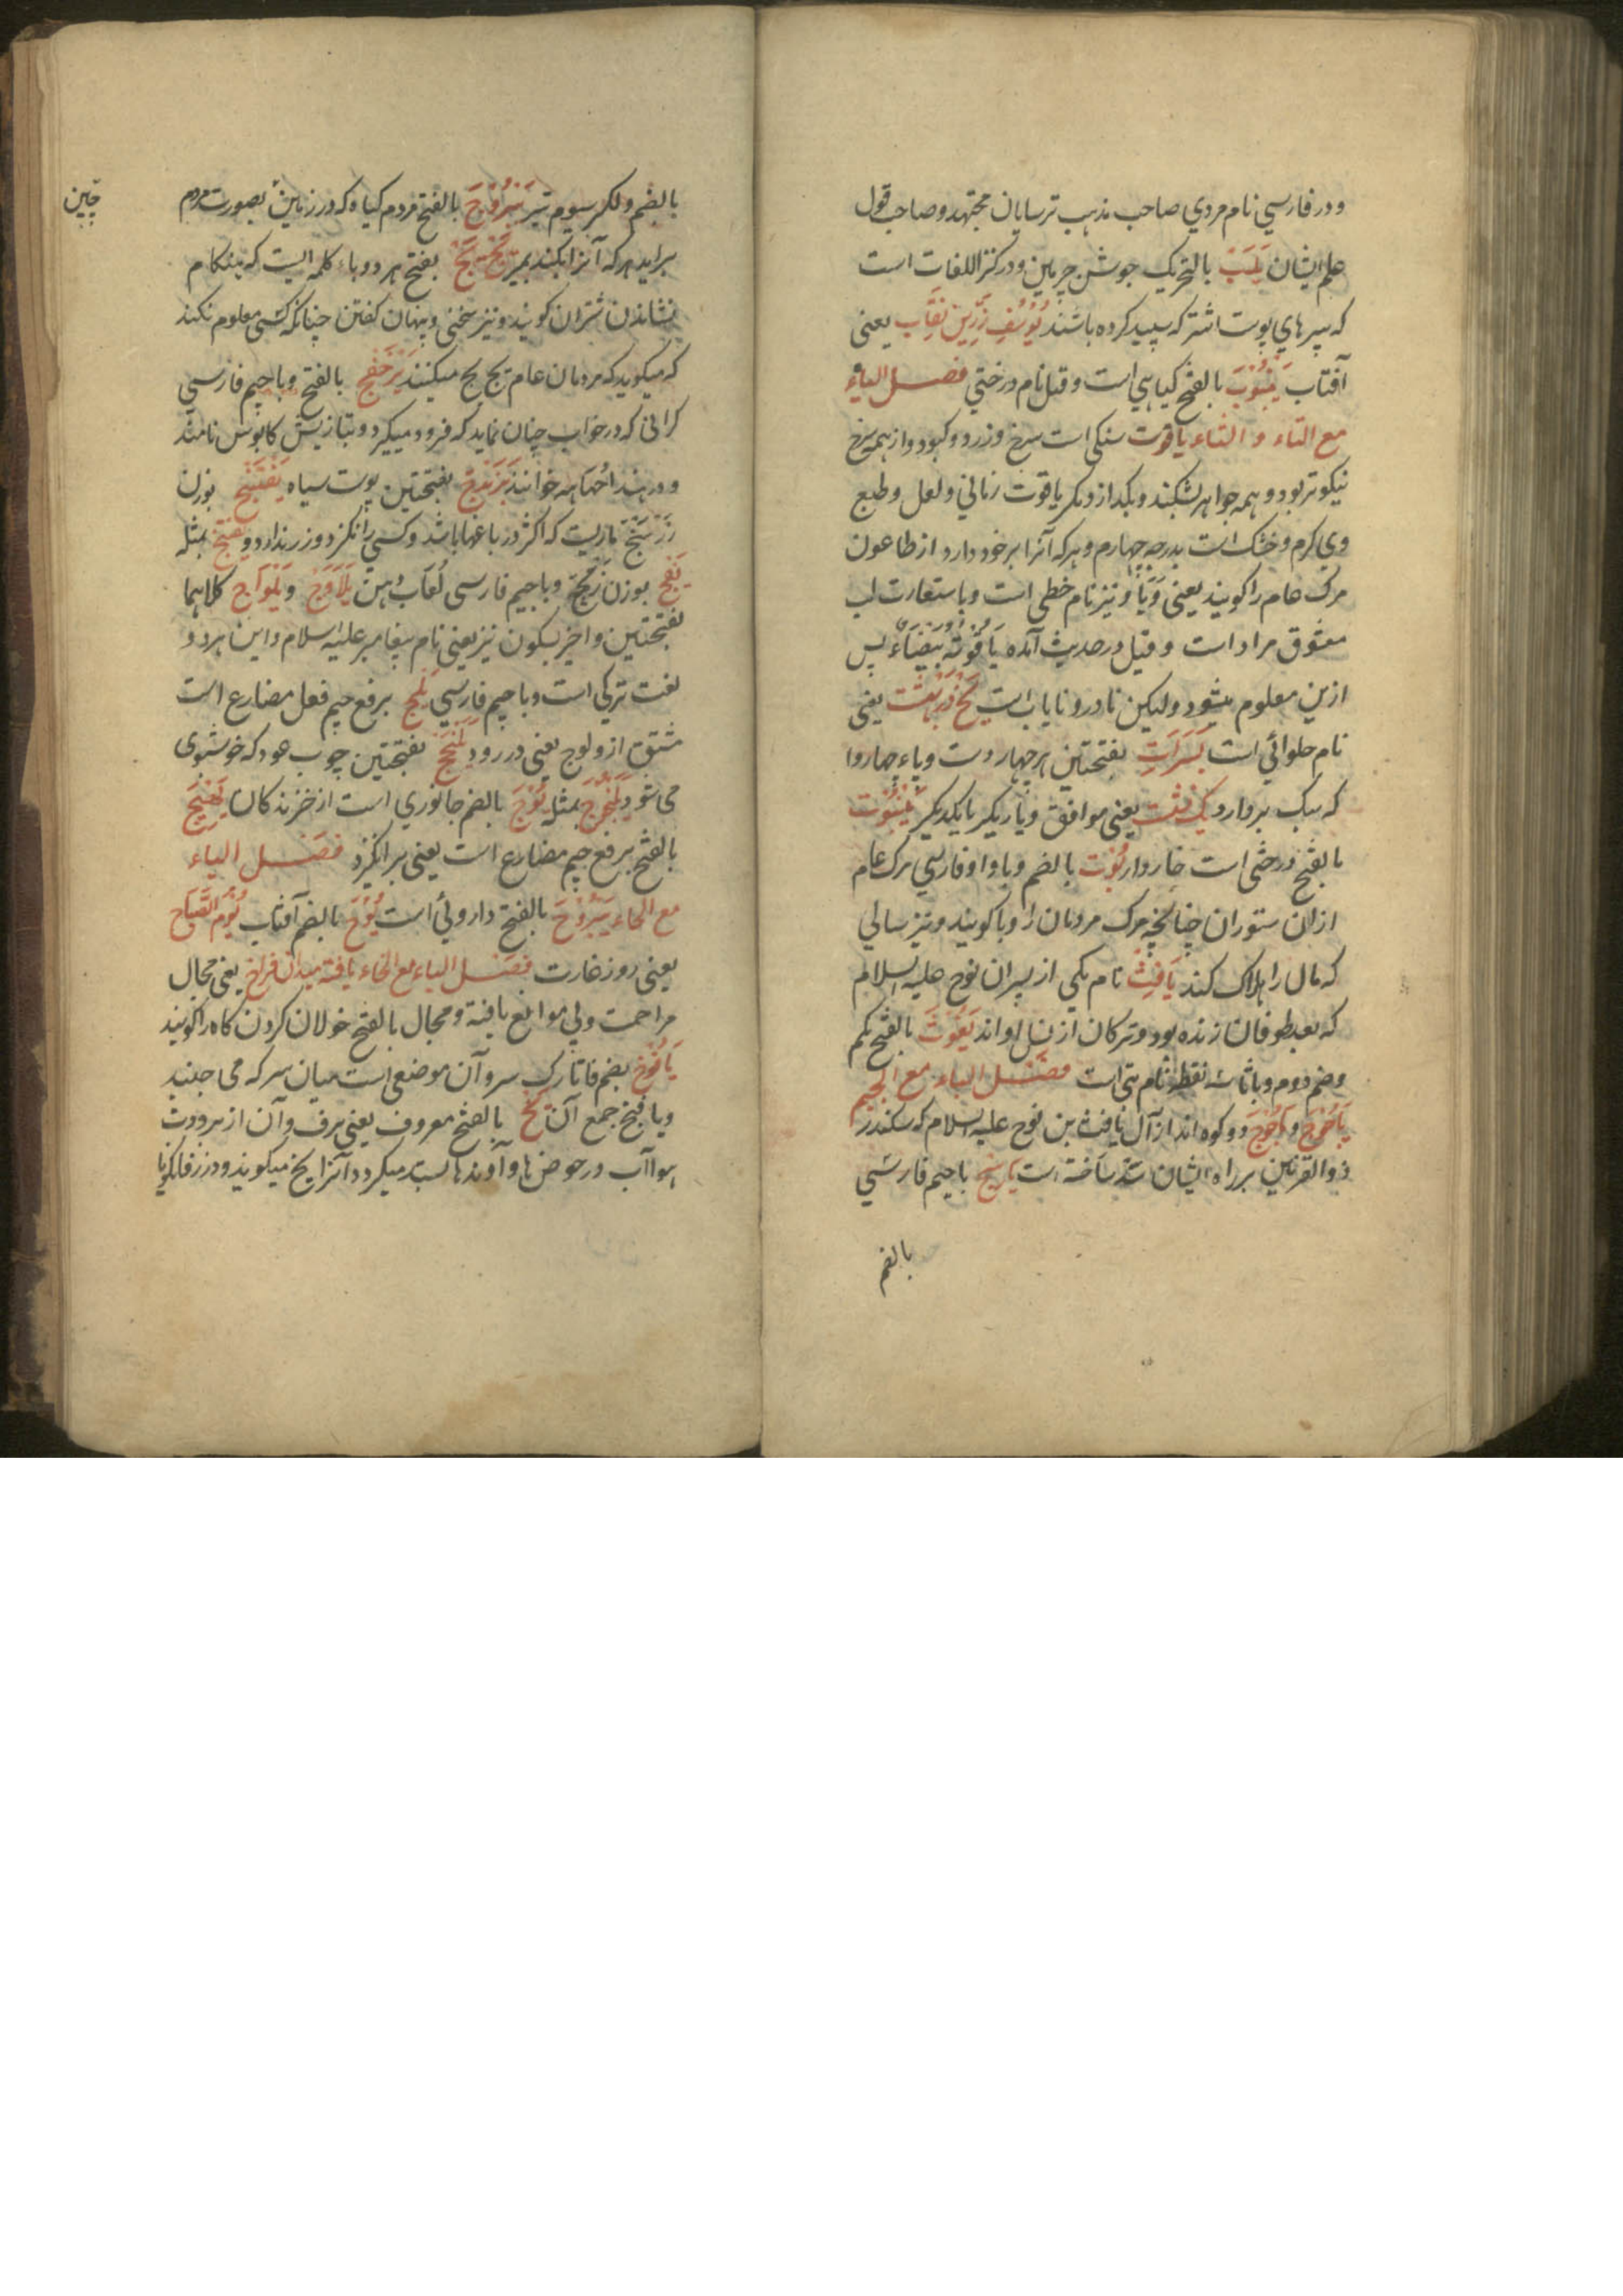 و در فارسي نام مردي صاحب مذهب ترسايان مجتهد و صاحب قول
علم ايشان يَلَبْ بالتحريك جوشن چرمين و در كنز اللغات است
كه سپرهاي پوست اشتر كه سپيد كرده باشند يُوسُفِ زَرِّين نِقَاب يعني
آفتاب يَنْبُوبْ بالفتح گياهي است و قيل نام درختي فصل الياء
مع التاء و الثاء ياقوت سنگي است سرخ و زرد و كبود و از همه سرخ
نيكوتر بود و همه جواهر بشكند و بگدازد مگر ياقوت رماني و لعل و طبع
وي گرم و خشك است بدرجه چهارم و هركه آنرا بر خود دارد از طاعون
مرك عام را گويند يعني وَبَا و نيز نام خطي است و باستعارت لب
معشوق مراد است و قيل در حديث آمده يَاقُوتَةٌ بَيْضَاءُ پس
ازين معلوم ميشود وليكن نادر و ناياب است يخ در بهشت يعني
نام حلوائي است يَسَرَات بفتحتين هر چهار دست و پاء چهاروا
كه سبك بردارد يك مشت يعني موافق و يار يكر با يكديگر يَنْبُوت
بالفتح درختي است خاردار يُوْت بالضم و با واو فارسي مرك عام
از ان ستوران چنانچه مرك مردمان را وبا گويند و نيز سالي
كه مال را هلاك كند يَافِث نام يكي از پسران نوح عليه السلام
كه بعد طوفان زنده بود و تركان از نسل او اند يَغُوثْ بالفتح يكم
و ضم دوم و با ثاء سه نقطه نام بتي است فصل الياء مع الجيم
يَأْجُوج و مَأْجُوج دو گروه اند از آل يافث بن نوح عليه السلام كه سكندر
ذو القرنين بر راه ايشان سد ساخته است يارج با جيم فارسي
بالضم
بالضم و بكسر سيوم تير يَبْرُوْج بالفتح مردم گياه كه در زمين بصورت مردم
چين
برايد هركه آنرا بكند بميرد بفتح هر دو باء كلمه ايست كه هنگام
نشاندن شتران گويند و نيز سخني و پنهان گفتن چنانكه كسي معلوم نكند
كه ميگويد كه مردمان عام بج بج ميكنند يَرْخَفْج بالفتح و با جيم فارسي
گراني كه در خواب چنان نمايد كه فرود ميگيرد و بتازيش كابوس نامند
و در هند خوانند يَرَنْدَج بفتحتين پوست سياه يَفْتَنْج بوزن
مار يست كه اكثر در باغها باشد و كسي را نگزد و زهر ندارد و بمثله
يَفْج بوزن و با جيم فارسي لُعَاب دهن يَلَاوَج و يَلْوَاج كلاهما
بفتحتين و اخير بسكون نيز يعني نام پيغامبر عليه السلام و اين هر دو
لغت تركي است و با جيم فارسي يَلِج برفع جيم فعل مضارع است
مشتق از ولوج يعني در رود يَلَنْجَج بفتحتين چوب عود كه خوشبوي
مي شود و يَلَنْجُوج بمثله يُوْج بالضم جانوري است از خزندگان يَهِيْج
بالفتح برفع جيم مضارع است يعني برانگيزد فصل الياء
مع الحاء يَبْرُوْح بالفتح داروئي است يُوْح بالضم آفتاب يَوْمُ الصَّبَاح
يعني روز غارت فصل الياء مع الخاء يافته ميدان فراخ يعني مجال
مراحمت و بي موانع يافته و مجال بالفتح جولان كردن گاه را گويند
يَافُوْخ بضم فا تارك سر و آن موضعي است ميان سر كه مي جنبد
و يافيخ جمع آن يَخ بالفتح معروف يعني برف و آن از برودت
هوا آب در حوضها و آوندها بسته ميگردد آنرا يخ ميگويند و در زفانگويا